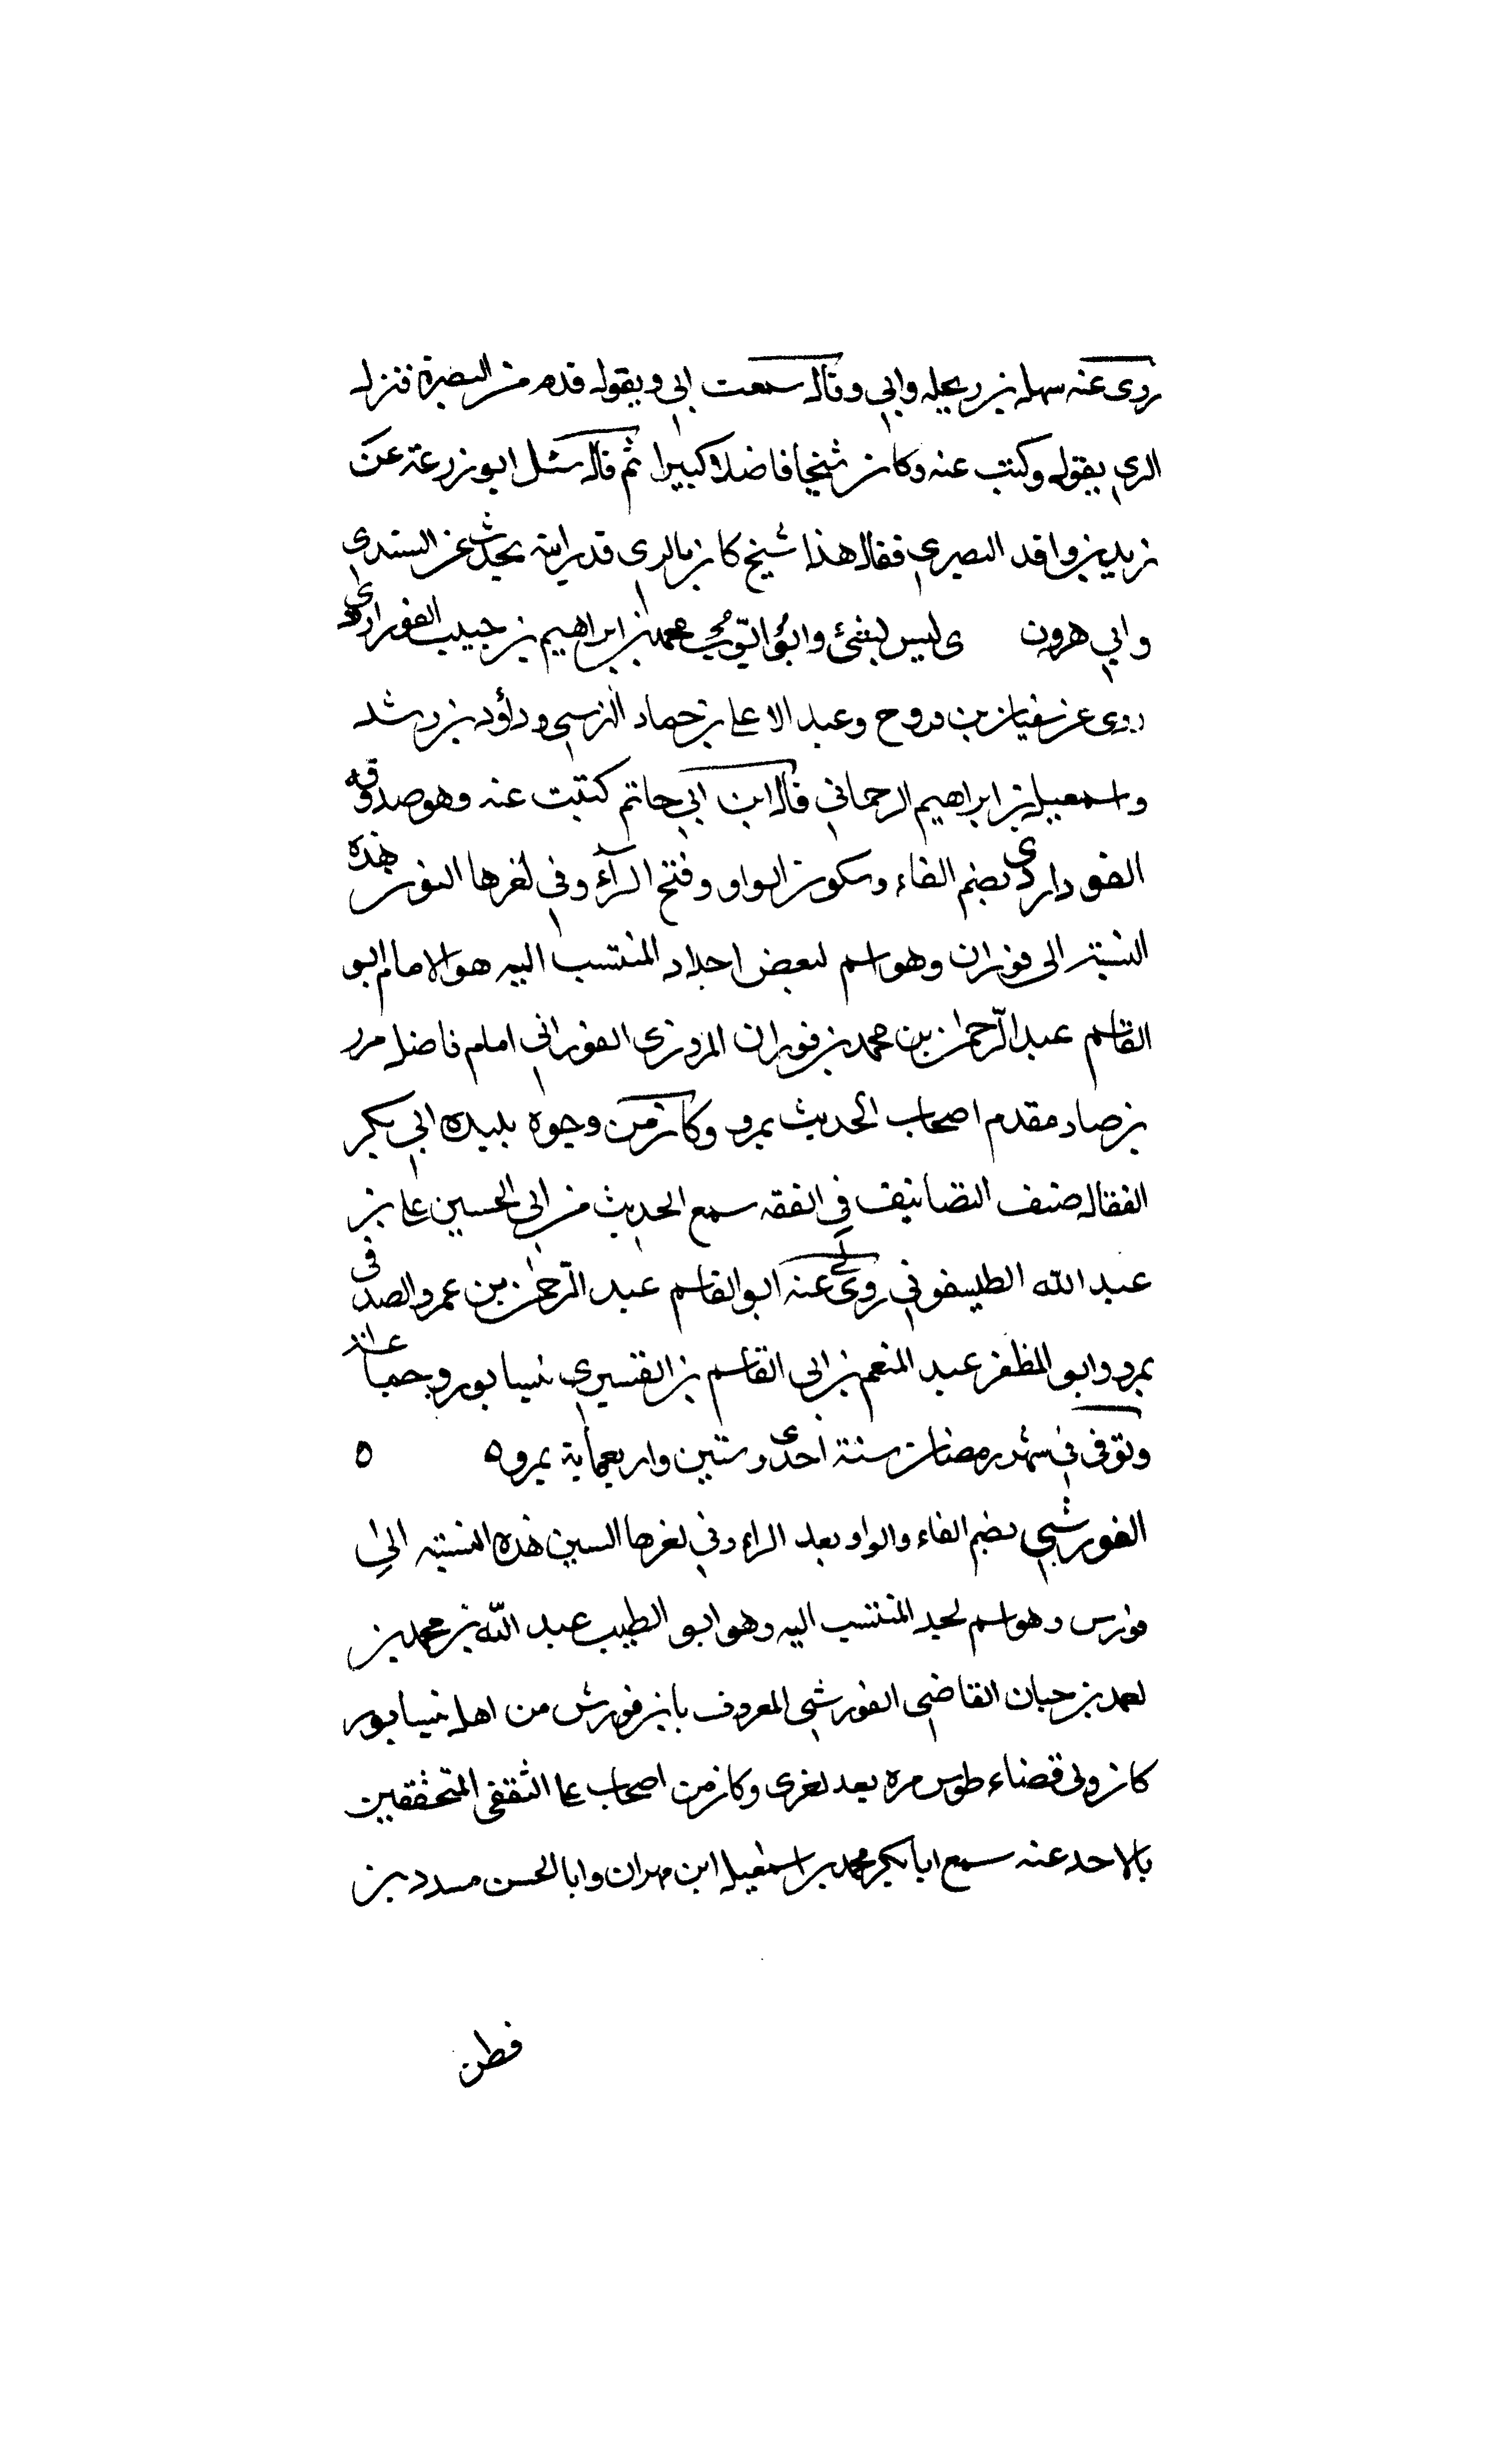 روى عنه سهل بن زنجله وابي وقال سمعت ابي ويقول قدم من البصرة فنزل
الري يقول وكتب عنه وكان شيخا فاضلا كبيرا ثم قال سئل ابو زرعة عن
زيد بن واقد البصري فقال هذا شيخ كان بالري قد رايته يحدث عن السندي
وابي هرون ى ليس بشئ وابو ايوب محمد بن ابراهيم بن حبيب الفورادي
روى عن سفيان بن فروح وعبد الاعلى بن حماد النرسي وداؤد بن رشد
واسمعيل بن ابراهيم الرحماني قال ابن ابي حاتم كتبت عنه وهو صدوقه
الفوداردي بضم الفاء وسكون الواو وفتح الرآء وفي لغرها النون هذه
النسبة الى فوران وهو اسم لبعض اجداد المنتسب اليه هو الامام ابو
القاسم عبد الرحمن بن محمد بن فوران المروزى الفوراني امام فاضل مرر
بن صار مقدم اصحاب الحديث بمرو وكان من وجوه بلبده ابي بكر
القفال صنف التصانيف في الفقه سمع الحديث من ابي الحسين على بن
عبد الله الطيسفوني روى عنه ابو القاسم عبد الرحمن بن عمرو الصدفى
بمرو وابو المظفر عبد المنعم بن ابى القاسم بن القشيري نيسابور وجماعة
وتوفى في شهر رمضان سنة احدى وستين واربعماية بمرو ٥ ٥
الفورشي بضم الفاء والواو بعد الراء وفي لغرها السين هذه النسبته الي
فورس وهو اسم لجد المنتسب اليه وهو ابو الطيب عبد الله بن محمد بن
لعمد بن حبان القاضي الفورشي المعروف بابن فورش من اهل نيسابور
كان ولى قضاء طوس مره بعد لغرى وكان من اصحاب على الثقفى المتحققين
بالاحد عنه سمع ابا بكر محمد بن اسمعيل ابن مهران وابا الحسن مسدد بن
فطن